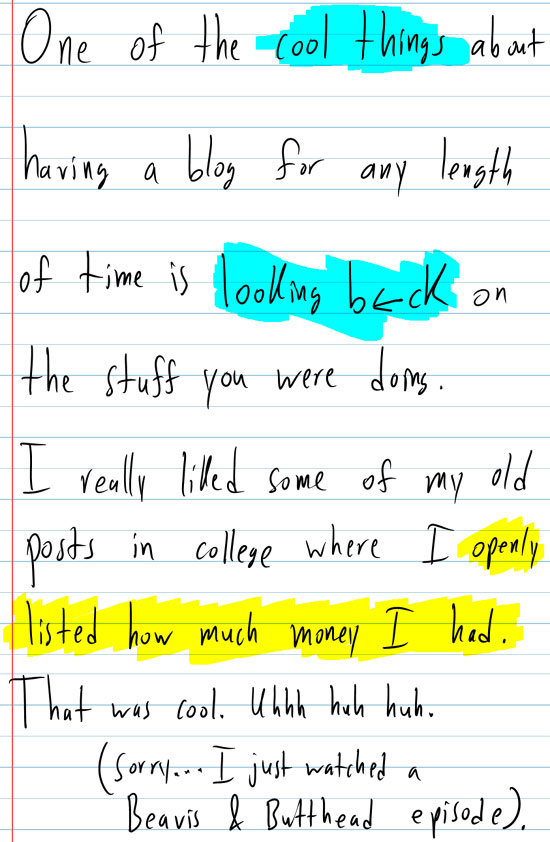 One of the cool things about
having a blog for any length
of time is looking b←ck on
the stuff you were doing.
I really liked some of my old
posts in college where I openly
listed how much money I had.
That was cool. Uhhh huh huh.
(Sorry... I just watched a
Beavis & Butthead episode).